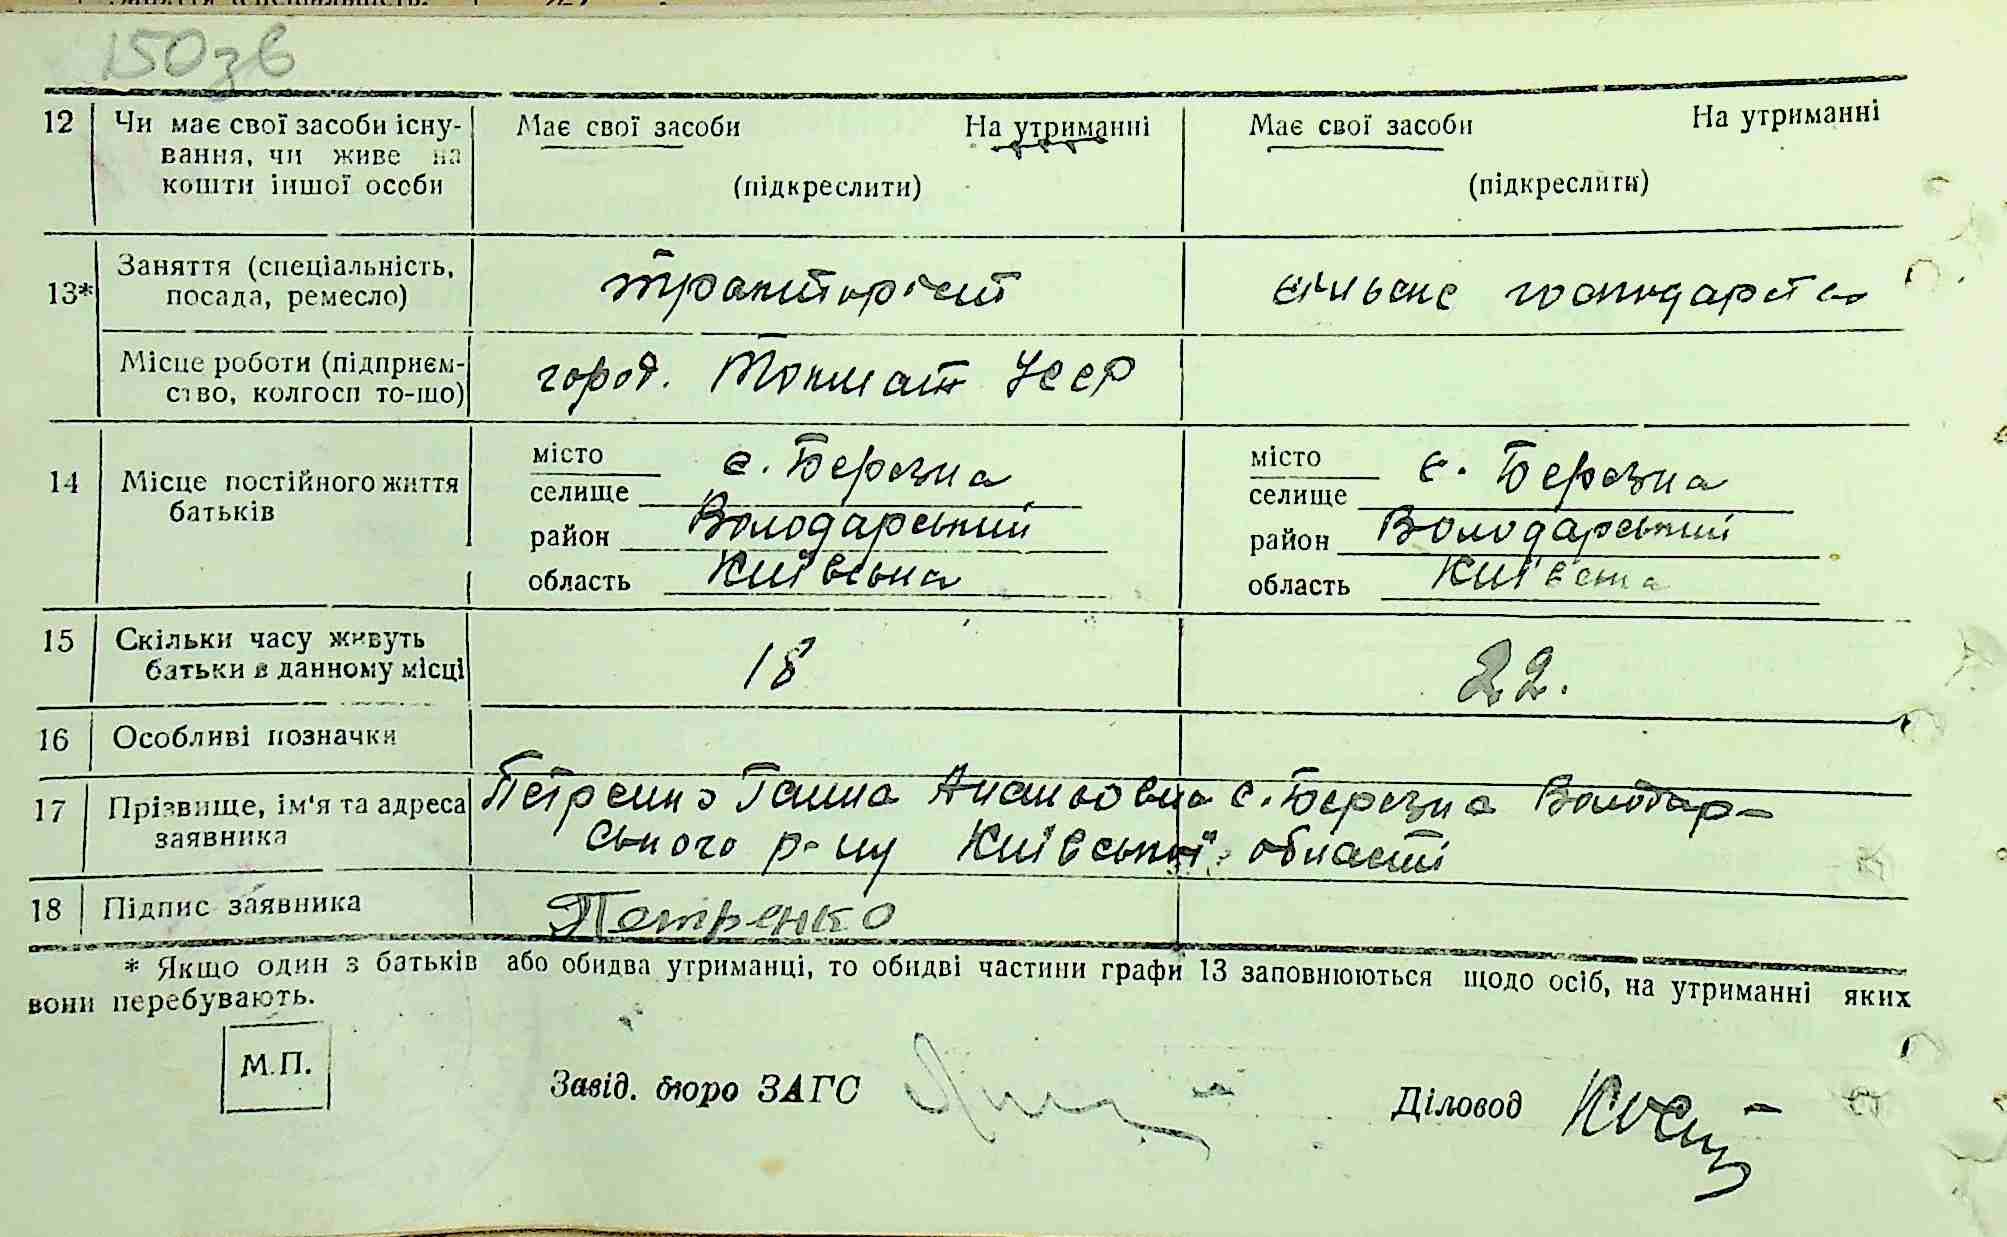 150зв
12 Чи має свої засоби існу- Має свої засоби На утриманні Має свої засоби На утриманні
вання, чи живе на
кошти іншої особи (підкреслити) (підкреслити)
13* Заняття (спеціальність, тракторист сільське господарство
посада, ремесло)
Місце роботи (підприєм- город. Токмак УССР
ство, колгосп то-що)
14 Місце постійного життя місто с. Березна місто с. Березна
батьків селище селище
район Володарський район Володарський
область Київська область Київська
15 Скільки часу живуть 18 22.
батьки в данному місці
16 Особливі позначки
17 Прізвище, ім'я та адреса Петренко Ганна с. Березна Володар-
заявника ського р-ну Київської області
18 Підпис заявника Петренко
* Якщо один з батьків або обидва утриманці, то обидві частини графи 13 заповнюються щодо осіб, на утриманні яких
вони перебувають.
М.П.
Завід. бюро ЗАГС Діловод